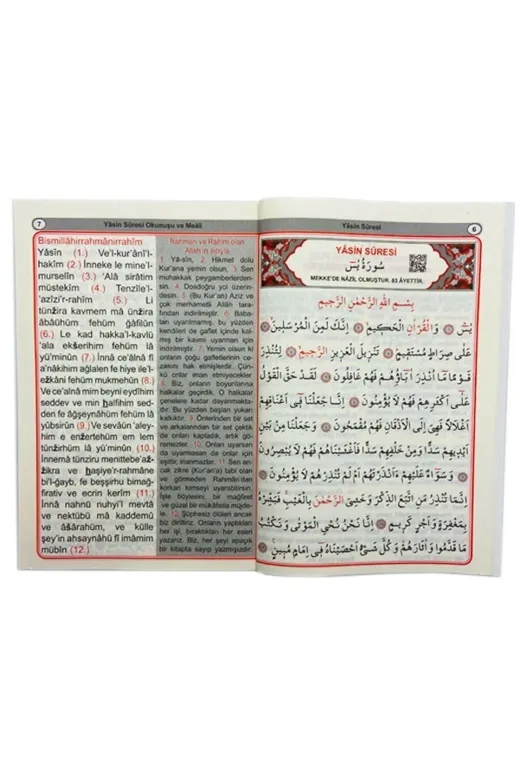 7
Yâsin Sûresi Okunuşu ve Meâli
Bismillâhirrahmânirrahîm
Yâsîn (1.) Ve'l-kur'âni'l-
hakîm (2.) İnneke le mine'l-
murselîn (3.) Alâ sirâtim
müstekîm (4.) Tenzîle'l-
'azîzi'r-rahîm (5.) Li
tünzira kavmem mâ ünzira
âbâühüm fehüm gâfilûn
(6.) Le kad hakka'l-kavlü
'ala ekserihim fehüm lâ
yü'minûn (7.) İnnâ ce'alnâ fî
a'nâkihim ağlalen fe hiye ile'l-
ezkâni fehüm mukmehûn (8.)
Ve ce'alnâ mim beyni eydîhim
seddev ve min halfihim sed-
den fe ağşeynâhüm fehüm lâ
yübsirûn (9.) Ve sevâün 'aley-
him e enzertehüm em lem
tünzirhüm lâ yü'minûn (10.)
İnnemâ tünziru menittebe'az-
zikra ve haşiye'r-rahmâne
bi'l-ğayb, fe beşşirhu bimağ-
firativ ve ecrin kerîm (11.)
İnnâ nahnü nuhyi'l mevtâ
ve nektübü mâ kaddemû
ve âsârahüm, ve külle
şey'in ahsaynâhü fî imâmim
mübîn (12.)
Rahman ve Rahim olan
Allah'ın ismiyle
1. Yâ-sîn, 2. Hikmet dolu
Kur'ana yemin olsun, 3. Sen
muhakkak peygamberlerden-
sin. 4. Dosdoğru yol üzerin-
desin. 5. (Bu Kur'an) Aziz ve
çok merhametli Allah tara-
fından indirilmiştir. 6. Baba-
ları uyarılmamış, bu yüzden
kendileri de gaflet içinde kal-
mış bir kavmi uyarman için
indirilmiştir. 7. Yemin olsun ki
onların çoğu gafletlerinin ce-
zasını hak etmişlerdir. Çün-
kü onlar iman etmeyecekler.
8. Biz, onların boyunlarına
halkalar geçirdik. O halkalar
çenelere kadar dayanmakta-
dır. Bu yüzden başları yukarı
kalkıktır. 9. Önlerinden bir set
ve arkalarından bir set çektik
de onları kapladık, artık gör-
mezler. 10. Onları uyarsan
da uyarmasan da onlar için
eşittir, inanmazlar. 11. Sen an-
cak zikre (Kur'an'a) tabi olan
ve görmeden Rahmân'dan
korkan kimseyi uyarabilirsin.
İşte böylesini, bir mağfiret
ve güzel bir mükâfatla müjde-
le. 12. Şüphesiz ölüleri ancak
biz diriltiriz. Onların yaptıkları
her işi, bıraktıkları her eseri
yazarız. Biz, her şeyi apaçık
bir kitapta sayıp yazmışızdır.
Yâsin Sûresi
6
YÂSÎN SÛRESİ
سُورَةُ يٰسٓ
MEKKE'DE NÂZİL OLMUŞTUR. 83 ÂYETTİR.
بِسْمِ اللّٰهِ الرَّحْمٰنِ الرَّحِيمِ
يٰسٓ ۞ وَالْقُرْاٰنِ الْحَكِيمِ ۞ اِنَّكَ لَمِنَ الْمُرْسَلِينَ ۞
عَلٰى صِرَاطٍ مُسْتَقِيمٍ ۞ تَنْزِيلَ الْعَزِيزِ الرَّحِيمِ ۞ لِتُنْذِرَ
قَوْمًا مَا اُنْذِرَ اٰبَاؤُهُمْ فَهُمْ غَافِلُونَ ۞ لَقَدْ حَقَّ الْقَوْلُ
عَلٰى اَكْثَرِهِمْ فَهُمْ لَا يُؤْمِنُونَ ۞ اِنَّا جَعَلْنَا فِى اَعْنَاقِهِمْ
اَغْلَالًا فَهِىَ اِلَى الْاَذْقَانِ فَهُمْ مُقْمَحُونَ ۞ وَجَعَلْنَا مِنْ بَيْنِ
اَيْدِيهِمْ سَدًّا وَمِنْ خَلْفِهِمْ سَدًّا فَاَغْشَيْنَاهُمْ فَهُمْ لَا يُبْصِرُونَ
۞ وَسَوَاءٌ عَلَيْهِمْ ءَاَنْذَرْتَهُمْ اَمْ لَمْ تُنْذِرْهُمْ لَا يُؤْمِنُونَ ۞
اِنَّمَا تُنْذِرُ مَنِ اتَّبَعَ الذِّكْرَ وَخَشِىَ الرَّحْمٰنَ بِالْغَيْبِ فَبَشِّرْهُ
بِمَغْفِرَةٍ وَاَجْرٍ كَرِيمٍ ۞ اِنَّا نَحْنُ نُحْىِ الْمَوْتٰى وَنَكْتُبُ
مَا قَدَّمُوا وَاٰثَارَهُمْ وَكُلَّ شَىْءٍ اَحْصَيْنَاهُ فِى اِمَامٍ مُبِينٍ ۞